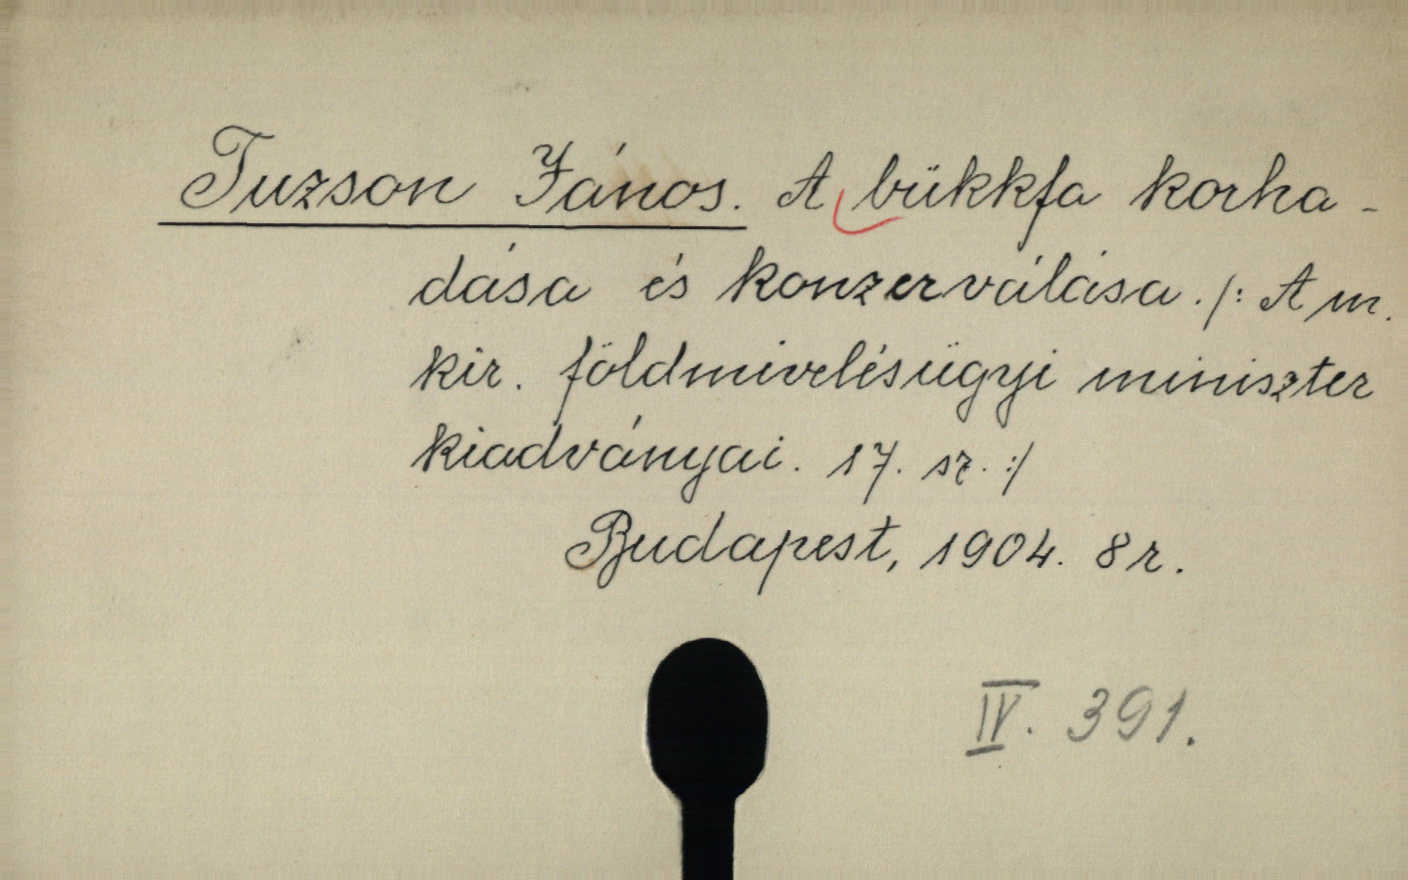 Tuzson János. A bükkfa korha-
dása és konzerválása. /: A m.
kir. földmivelésügyi miniszter
kiadványai. 17. sz. :/
Budapest, 1904. 8r.
IV. 391.